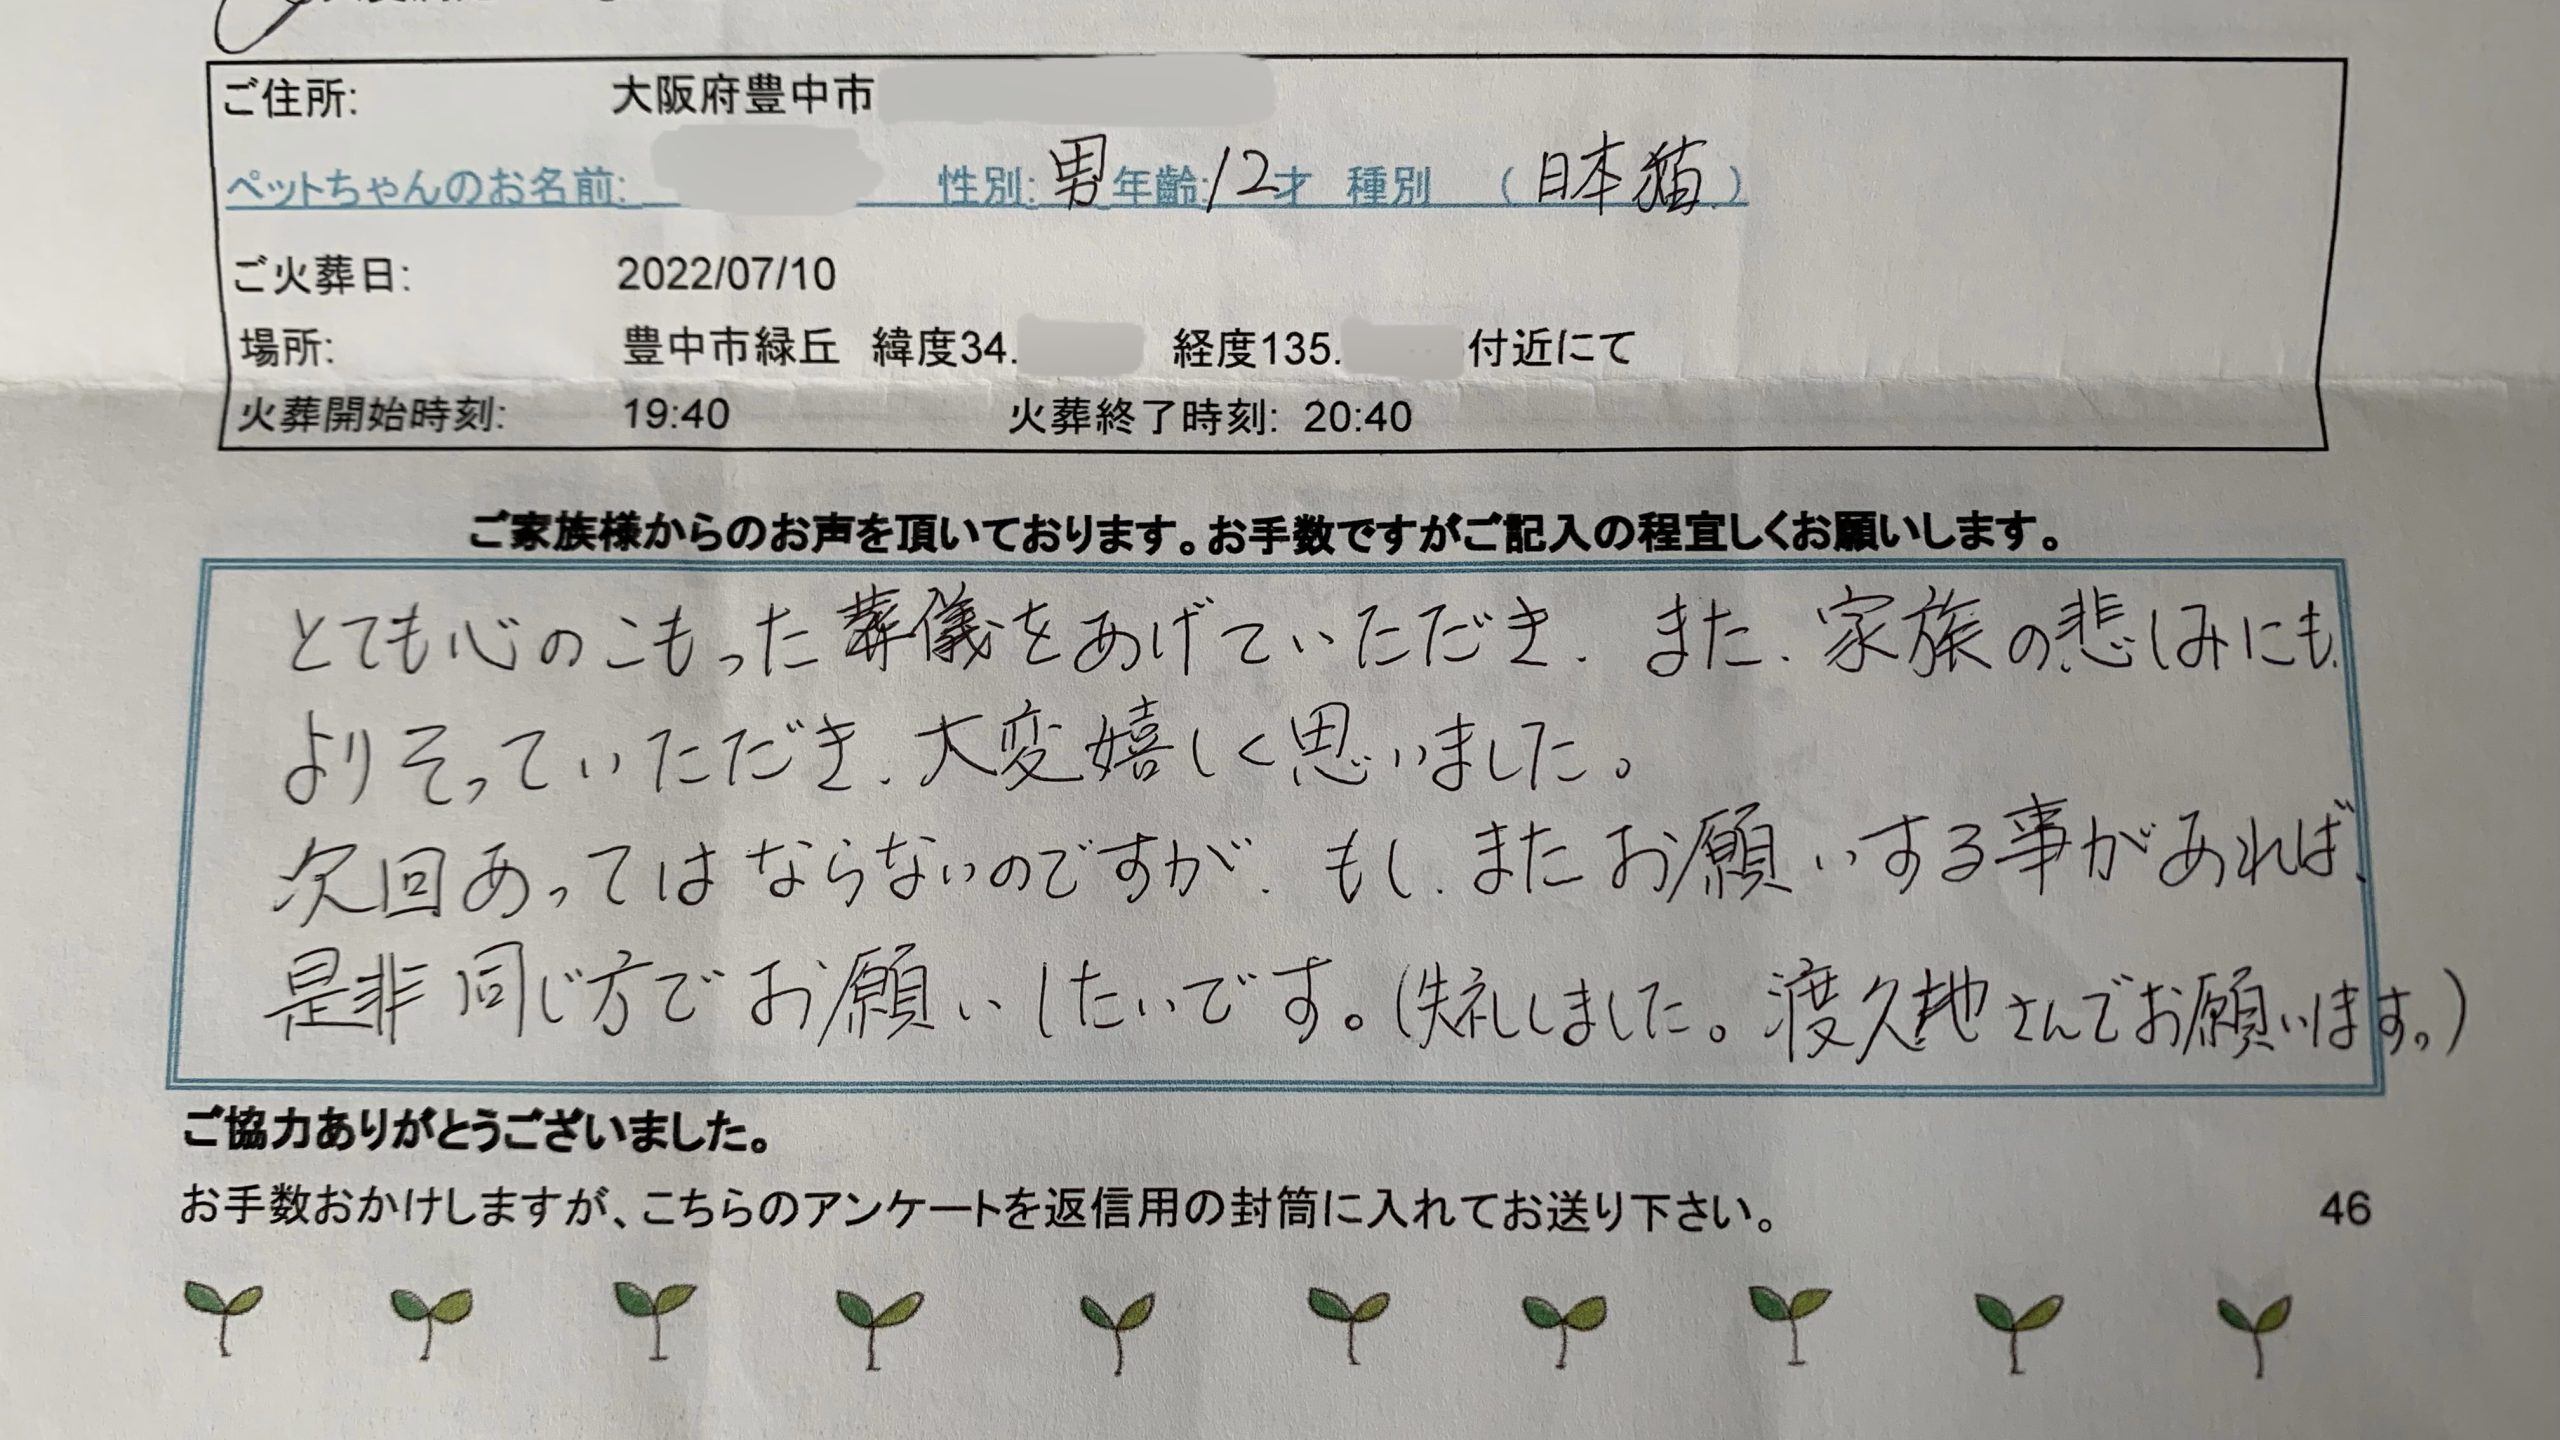 ご住所: 大阪府豊中市
ペットちゃんのお名前: 性別: 男 年齢: 12才 種別 (日本猫)
ご火葬日: 2022/07/10
場所: 豊中市緑丘 緯度34. 経度135. 付近にて
火葬開始時刻: 19:40 火葬終了時刻: 20:40
ご家族様からのお声を頂いております。お手数ですがご記入の程宜しくお願いします。
とても心のこもった葬儀をあげていただき、また、家族の悲しみにも、
よりそっていただき、大変嬉しく思いました。
次回あってはならないのですが、もし、またお願いする事があれば、
是非同じ方でお願いしたいです。(失礼しました。渡久地さんでお願います。)
ご協力ありがとうございました。
お手数おかけしますが、こちらのアンケートを返信用の封筒に入れてお送り下さい。 46